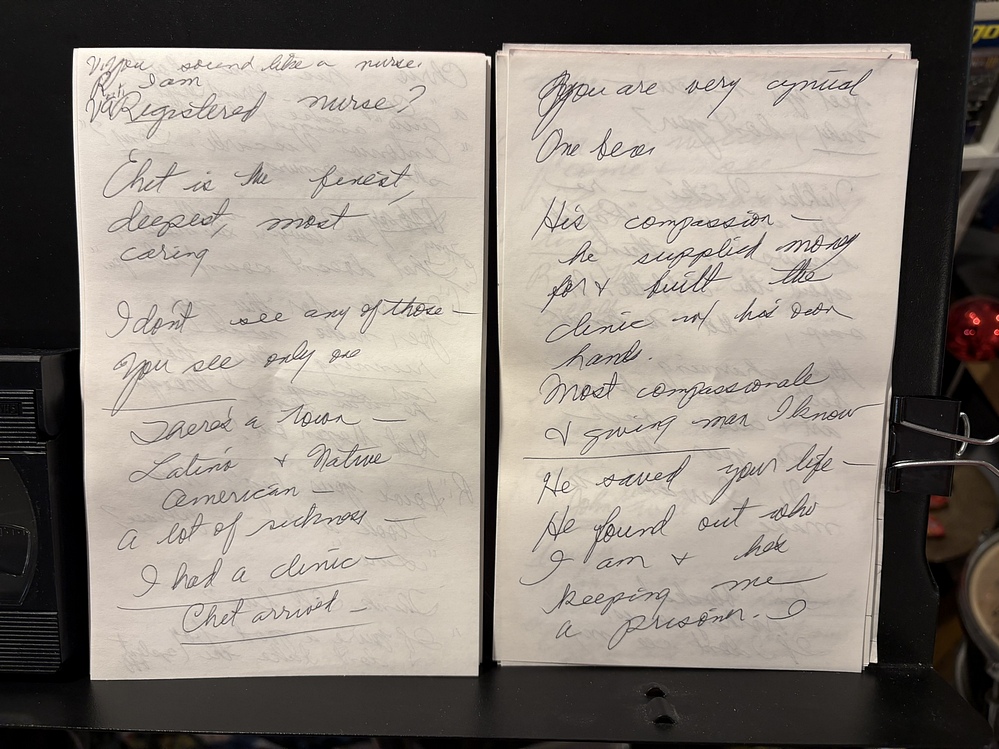 V. You sound like a nurse.
R. I am
V. Registered nurse?
Chet is the finest,
deepest, most
caring
I don't see any of those —
You see only one
There's a town —
Latino & Native
American —
a lot of sickness —
I had a clinic
Chet arrived —
You are very cynical
One
His compassion —
he supplied money
for & built the
clinic w/ his own
hands.
Most compassionate
& giving man I know
He saved your life —
He found out who
I am & he's
keeping me
a prisoner.